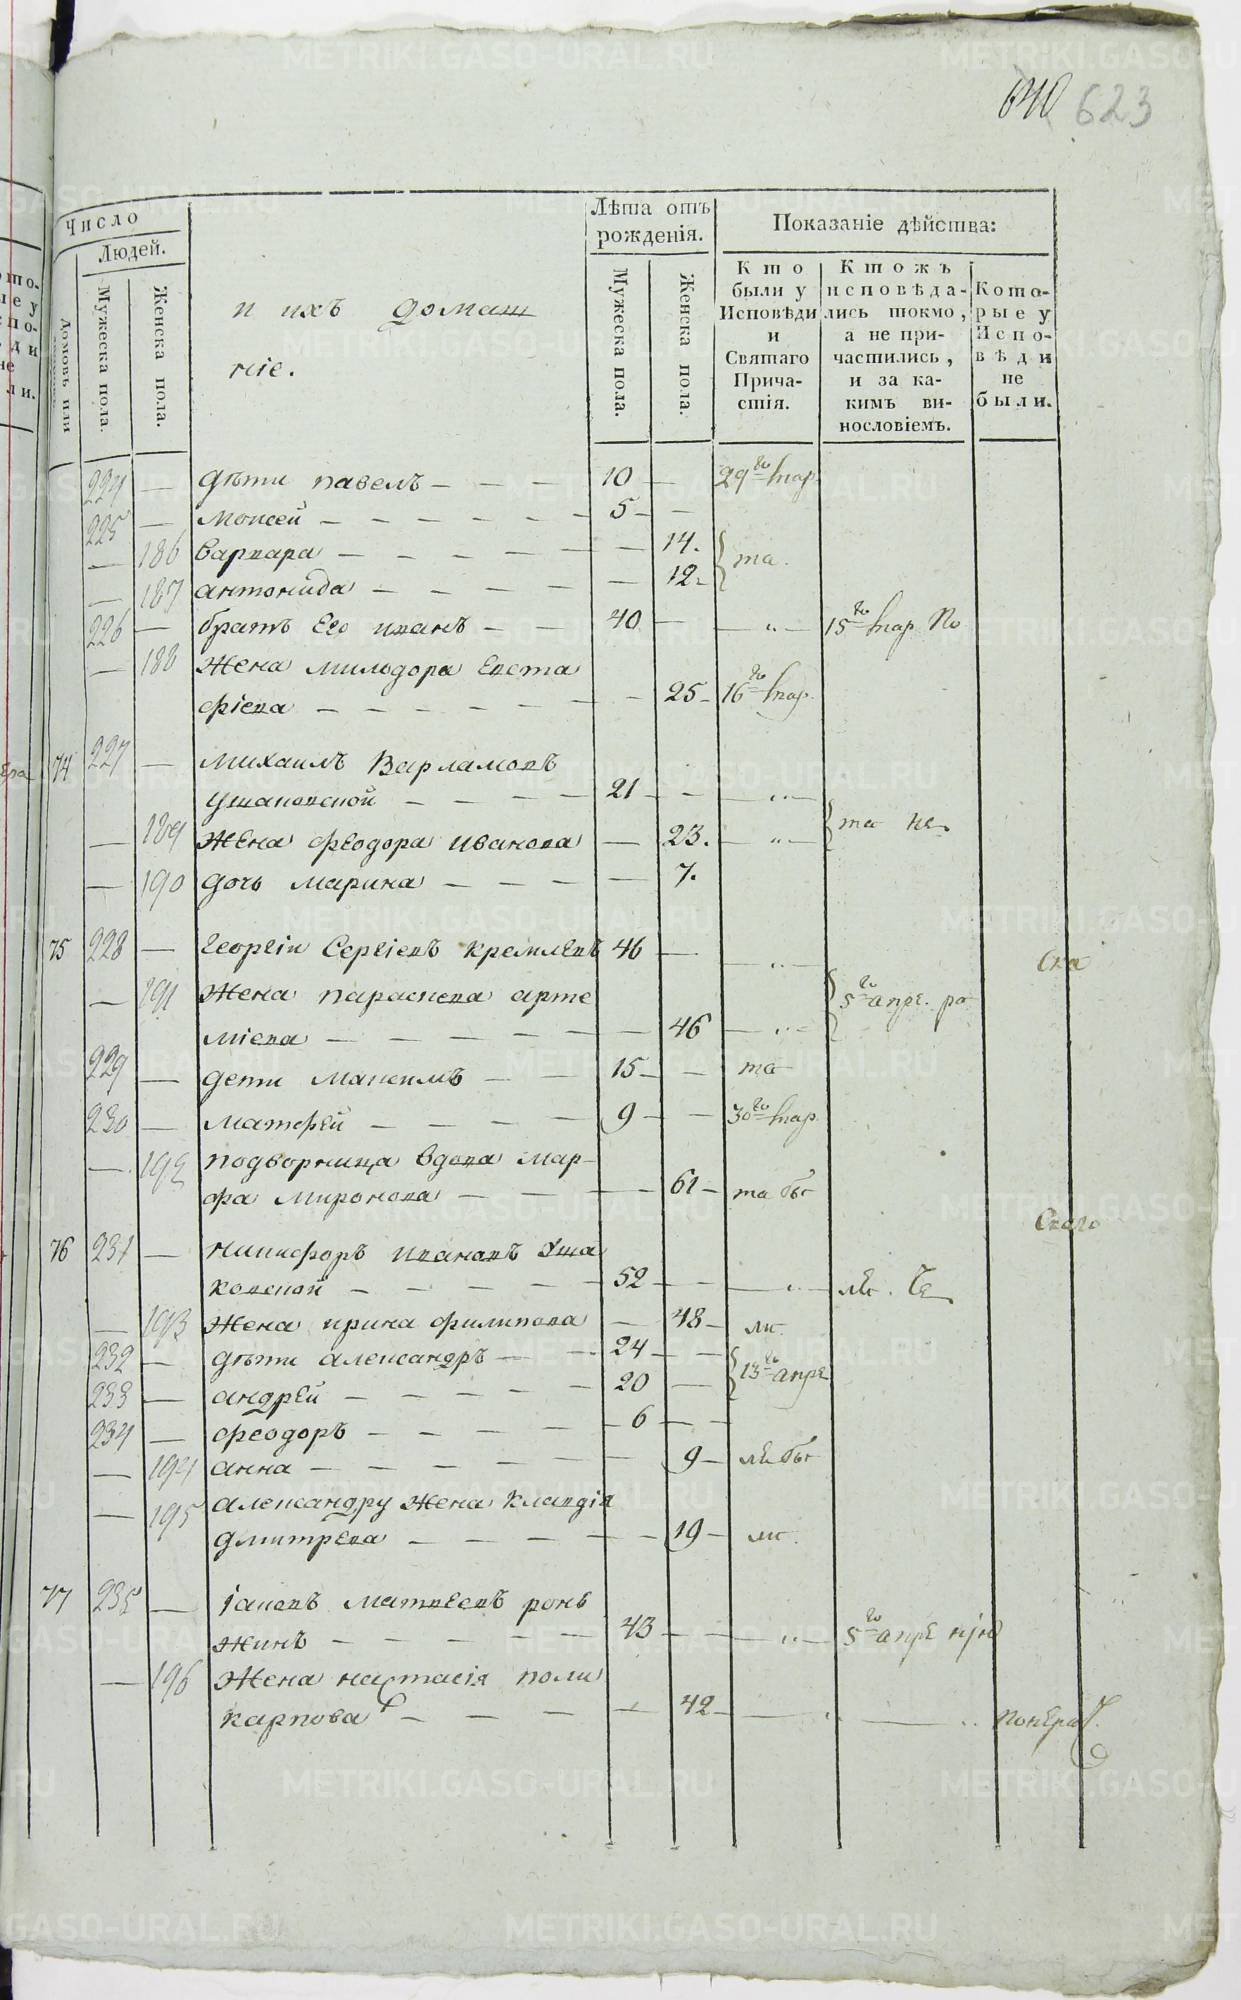 640 623
Число
Людей.
Домовъ или
Мужеска пола.
Женска пола.
и ихъ домаш
ніе.
Лѣта отъ
рожденія.
Мужеска пола.
Женска пола.
Показаніе дѣйства:
Кто
были у
Исповѣди
и
Святаго
Прича-
стія.
Ктожъ
исповѣда-
лись токмо,
а не при-
частились,
и за ка-
кимъ ви-
нословіемъ.
Кото-
рые у
Испо-
вѣди
не
были.
224 — дѣти павелъ — — — 10 — 29го мар.
225 — моисей — — — — — 5 — —
— 186 варвара — — — — — — 14.
— 187 антонида — — — — — 12 — та.
226 — братъ его иванъ — — 40 — — „ — 15го мар По
— 188 жена милодора евста
фіева — — — — — — 25 — 16го мар.
74 227 — михаилъ варламовъ
ушаковской — — — — 21 — — — „ —
— 189 жена феодора иванова — 23. — „ — та не
— 190 дочь марина — — — — 7.
75 228 — георгіи сергіевъ кремлевъ 46 — — „ —
— 191 жена параскева арте
міева — — — — — — 46 — „ — 5го апре. ра
229 — дети максимъ — — 15 — — та
230 — матфей — — — — 9 — — 30го мар.
— 192 подворница вдова мар-
фа миронова — — — — 61 — та бы
76 231 — никифоръ ивановъ уша
ковской — — — — — 52 — — — „ —
— 193 жена ирина филипова — 48 —
232 — дѣти александръ — — 24 — — 13го апре
233 — андрей — — — — — 20 —
234 — феодоръ — — — — — 6 — —
— 194 анна — — — — — — 9 —
— 195 александру жена клавдія
дмитрева — — — — — — 19 —
77 235 — іаковъ матвеевъ ронь
жинъ — — — — — 43 — — „ — 5го апре
— 196 жена настасія поли
карпова — — — — — 42 — — „ — „